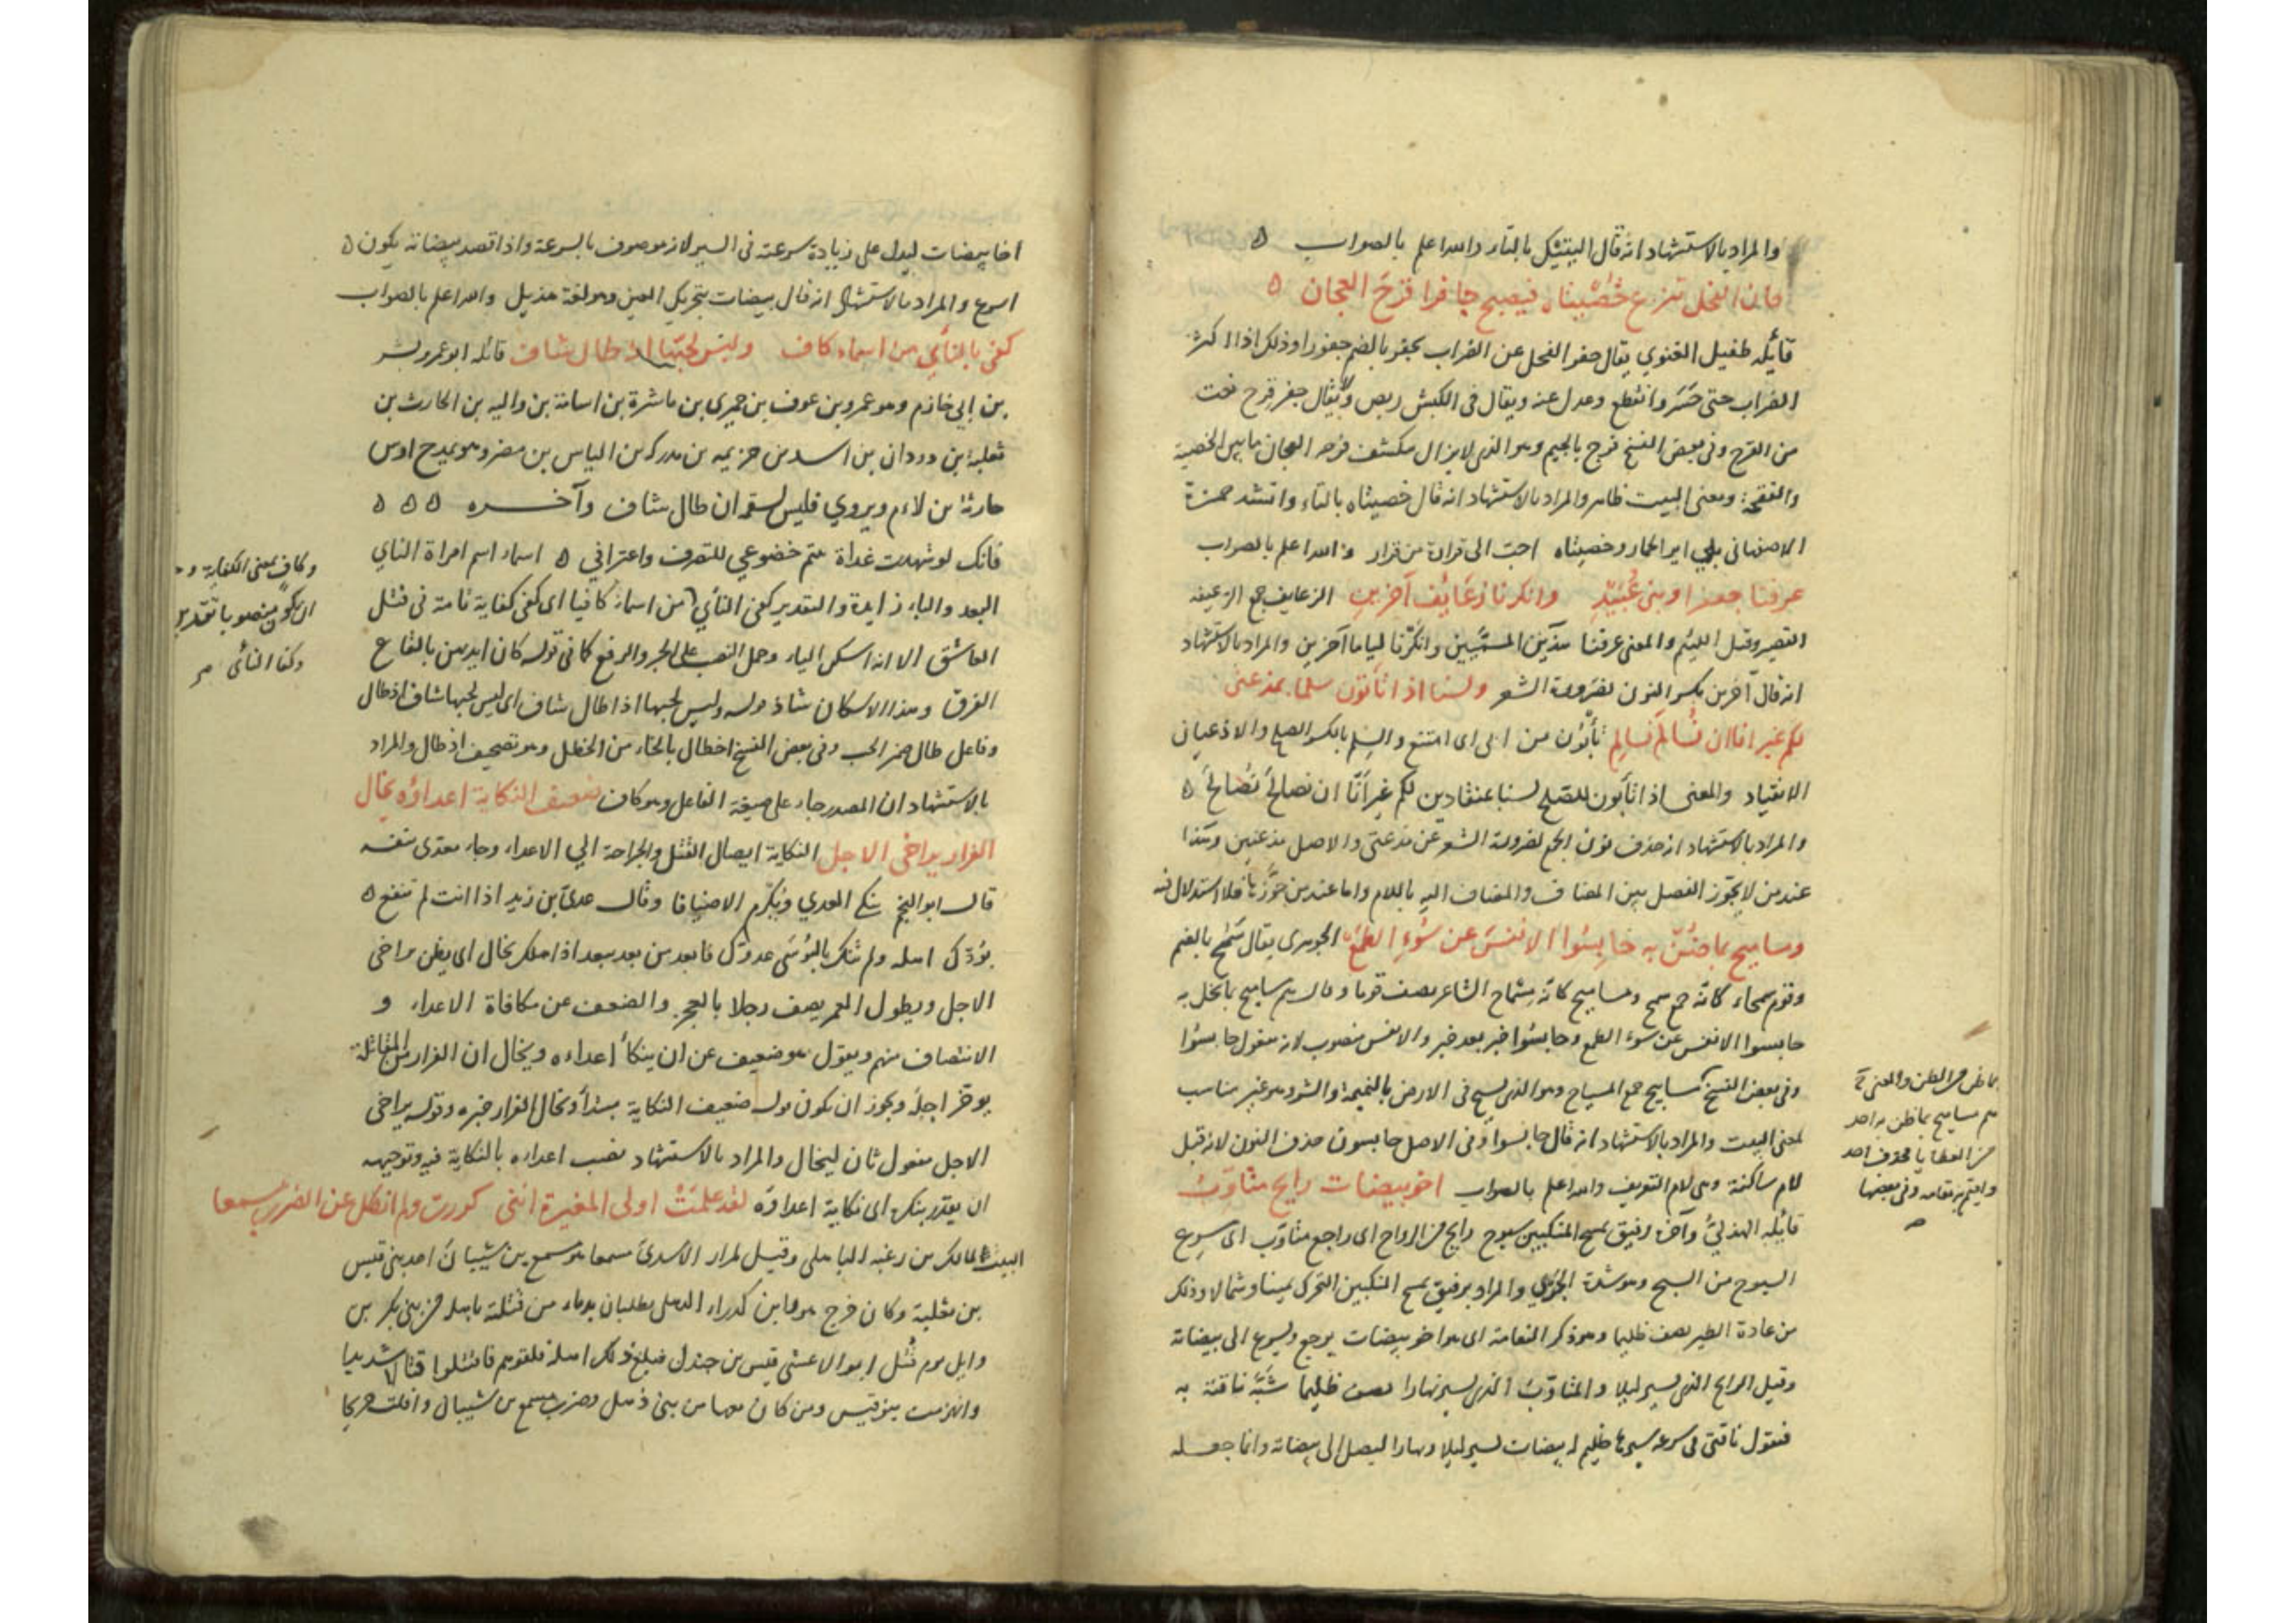 والمراد بالاستشهاد انه قال البيتيكن بالتاء والله اعلم بالصواب ه
فان الفحل تنزع خصيتاه فيصبح جافرا قرح العجان ه
قائله طفيل الغنوي يقال جفر الفحل عن الضراب يجفر بالضم جفورا وذلك اذا اكثر
الضراب حتى حسر وانقطع وعدل عنه ويقال في الكبش ربض ولا يقال جفر قرح نعت
من القرح وفي بعض النسخ فرج بالجيم وهو الذي لا يزال ينكشف فرجه العجان ما بين الخصية
والفقحة ومعنى البيت ظاهر والمراد بالاستشهاد انه قال خصيتاه بالتاء وانشد حمزة
الاصفهاني بلي اير الحمار وخصيتاه احب الى فزارة من فزار والله اعلم بالصواب
عرفنا جعفرا وبني عبيد وانكرنا زعانف آخرين الزعانف جمع الزعنفة
القصير وقيل اللئيم والمعنى عرفنا هذين المسميين وانكرنا لياما آخرين والمراد بالاستشهاد
انه قال آخرين بكسر النون لضرورة الشعر ولسنا اذا تأبون سلما بمذعني
لكم غير انا ان نسالم نسالم تأبون من ابى اى امتنع والسلم بالكسر الصلح والاذعان
الانقياد والمعنى اذا تأبون للصلح لسنا بمنقادين لكم غير أنا ان نصالح نصالح ه
والمراد بالاستشهاد انه حذف نون الجمع لضرورة الشعر عن مذعني والاصل مذعنين وهذا
عند من لا يجوز الفصل بين المضاف والمضاف اليه باللام واما عند من جوزها فلا استدلال فيه
ومساميح بما ضن به حابسوا الانفس عن سوء الطمع الجوهرى يقال سمح بالضم
وقوم سمحاء كانه جمع سميح ومساميح كانه مسماح الشاعر يصف قوما وقال هم مساميح بما بخل به
حابسوا الانفس عن سوء الطمع وحابسوا خبر بعد خبر والانفس منصوب لانه مفعول حابسوا
وفي بعض النسخ مساييح جمع المسياح وهو الذي يسيح في الارض بالنميمة والشر وهو غير مناسب
لمعنى البيت والمراد بالاستشهاد انه قال حابسوا وفي الاصل حابسون حذف النون لانه قبل
لام ساكنة وهي لام التعريف والله اعلم بالصواب اخو بيضات رايح متأوب
قائله الهذلي وآخره رفيق بمسح المنكبين سبوح رايح من الرواح اى راجع متأوب اى سريع
السبوح من السبح وهو شدة الجري والمراد برفيق بمسح المنكبين التحرك يمينا وشمالا وذلك
من عادة الطير يصف ظليما وهو ذكر النعامة اى هو اخو بيضات يرجع ويسرع الى بيضاته
وقيل الرايح الذي يسير ليلا والمتأوب الذي يسير نهارا يصف ظليما شبه ناقته به
فنقول ناقتي في سرعة سيرها ظليم له بيضات يسير ليلا ونهارا ليصل الى بيضاته وانما جعله
بما ضن من الظن والمعنى
هم مساميح بما ظن به احد
من العطايا فحذف احد
واقيم به مقامه وفي بعضها
اخا بيضات ليدل على زيادة سرعته في السير لانه موصوف بالسرعة واذا قصد بيضاته يكون ه
اسرع والمراد بالاستشهاد انه قال بيضات بتحريك العين وهو لغة هذيل والله اعلم بالصواب
كفى بالنأي من اسماء كاف وليس لحبها اذ طال شاف قائله ابو عمرو بشر
بن ابي خازم وهو عمرو بن عوف بن حميرى بن ناشرة بن اسامة بن واليه بن الحارث بن
ثعلبة بن دودان بن اسد بن خزيمه بن مدركه بن الياس بن مضر وهو يمدح اوس
حارثة بن لاءم ويروي فليس لسقم ان طال شاف وآخــره ه ه ه
فانك لو شهدت غداة متم خضوعي للتصرف واعترافي ه اسماء اسم امراة النأي
البعد والباء زايدة والتقدير كفى النأي من اسماء كافيا اى كفى كفاية تامة في قتل
العاشق الا انه اسكن الياء وحمل النصب على الجر والرفع كما في قوله كان ايديهن بالقاع
القرق وهذا الاسكان شاذ قوله وليس لحبها اذا طال شاف اى ليس لحبها شاف اذ طال
وفاعل طال ضمير الحب وفي بعض النسخ اخطال بالخاء من الخطل وهو تصحيف اذ طال والمراد
بالاستشهاد ان المصدر جاء على صيغة الفاعل وهو كاف ضعيف النكاية اعداؤه يخال
الفرار يراخى الاجل النكاية ايصال القتل والجراحة الي الاعداء وجاء معدى بنفسه
قال ابو النجم ينكي العدي ويكرم الاضيافا وقال عدى بن زيد اذا انت لم تنفع ه
بودك اهله ولم تنك بالبؤسى عدوك فابعد من بعد ببعد اذا هلك يخال اى يظن يراخى
الاجل ويطول العمر يصف رجلا بالعجز والضعف عن مكافاة الاعداء و
الانتصاف منهم ويقول هو ضعيف عن ان ينكأ اعداءه ويخال ان الفرار من المقاتلة
يوخر اجله ويجوز ان يكون قوله ضعيف النكاية مبتدأ ويخال الفرار خبره وقوله يراخى
الاجل مفعول ثان ليخال والمراد بالاستشهاد نصب اعداءه بالنكاية فيه وتوجيهه
ان يقدر ينكى اى نكاية اعداؤه لقد علمت اولى المغيرة انني كررت ولم انكل عن الضرب مسمعا
البيت لمالك بن زغبه الباهلى وقيل لمرار الأسدى مسمعا هو مسمع بن شيبان احد بني قيس
بن ثعلبة وكان خرج هو وابن كدراء الذهلي يطلبان بدماء من قتلته باهله من بني بكر بن
وايل يوم قتل ابو الاعشى قيس بن جندل فبلغ ذلك اهله فلقوهم فاقتتلوا قتالا شديدا
وانهزمت بنو قيس ومن كان معها من بني ذهل وضرب مسمع بن شيبان وافلت جريحا
وكاف بمعنى الكفاية و
ان يكون منصوبا بتقدير
وكفا النائى